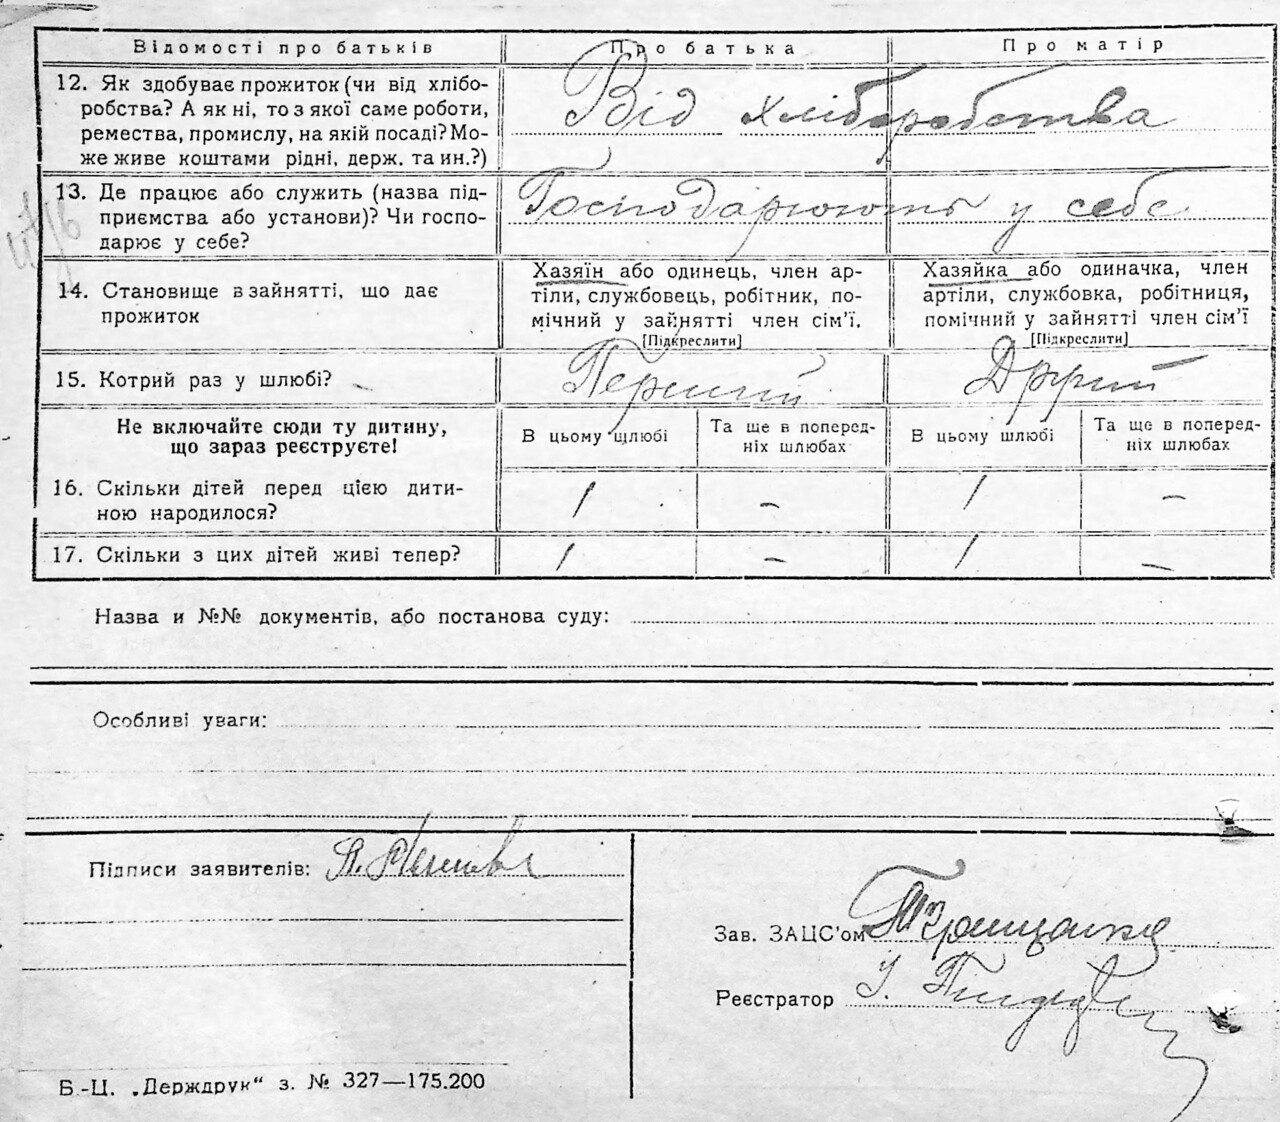 Відомості про батьків Про батька Про матір
12. Як здобуває прожиток (чи від хлібо-
робства? А як ні, то з якої саме роботи,
ремества, промислу, на якій посаді? Мо-
же живе коштами рідні, держ. та ин.?)
Від хліборобства
13. Де працює або служить (назва під-
приємства або установи)? Чи госпо-
дарює у себе?
Господарюють у себе
14. Становище в зайнятті, що дає
прожиток
Хазяїн або одинець, член ар-
тіли, службовець, робітник, по-
мічний у зайнятті член сім’ї.
[Підкреслити]
Хазяйка або одиначка, член
артіли, службовка, робітниця,
помічний у зайнятті член сім’ї
[Підкреслити]
15. Котрий раз у шлюбі? Перший Другий
Не включайте сюди ту дитину,
що зараз реєструєте!
В цьому шлюбі
Та ще в поперед-
ніх шлюбах
В цьому шлюбі
Та ще в поперед-
ніх шлюбах
16. Скільки дітей перед цією дити-
ною народилося?
1 – 1 –
17. Скільки з цих дітей живі тепер? 1 – 1 –
Назва и №№ документів, або постанова суду:
Особливі уваги:
Підписи заявителів:
Зав. ЗАЦС’ом
Реєстратор
Б.-Ц. „Держдрук“ з. № 327—175.200